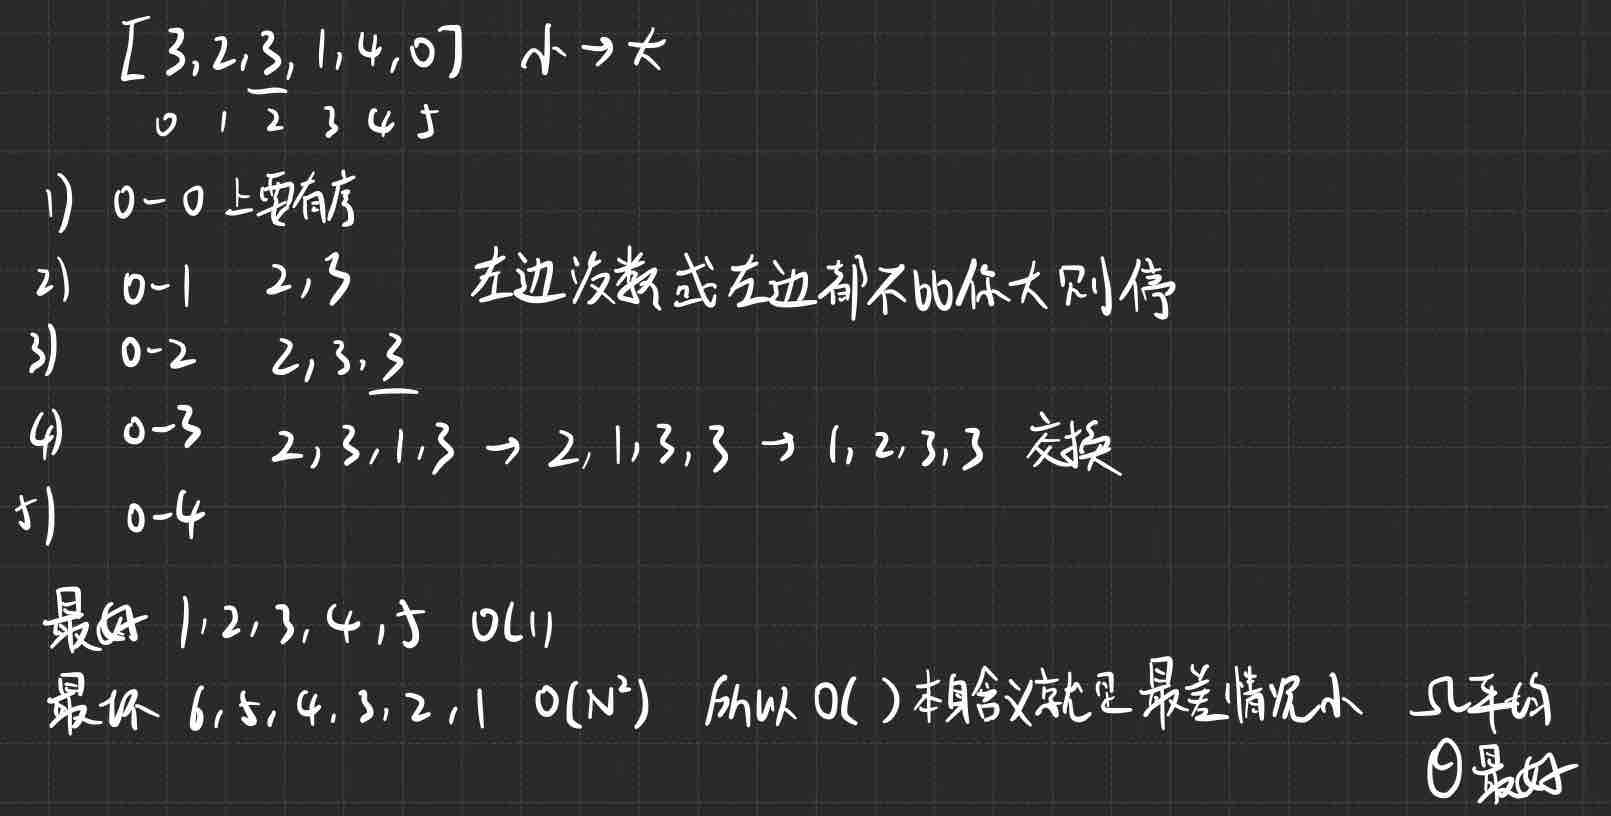 [3,2,3,1,4,0] 小→大
0 1 2 3 4 5
1) 0-0 上要有序
2) 0-1 2,3 左边没数或左边都不比你大则停
3) 0-2 2,3,3
4) 0-3 2,3,1,3 → 2,1,3,3 → 1,2,3,3 交换
5) 0-4
最好 1,2,3,4,5 O(1)
最坏 6,5,4,3,2,1 O(N²) 所以 O( )本身含义就是最差情况小 Ω平均
Θ最好